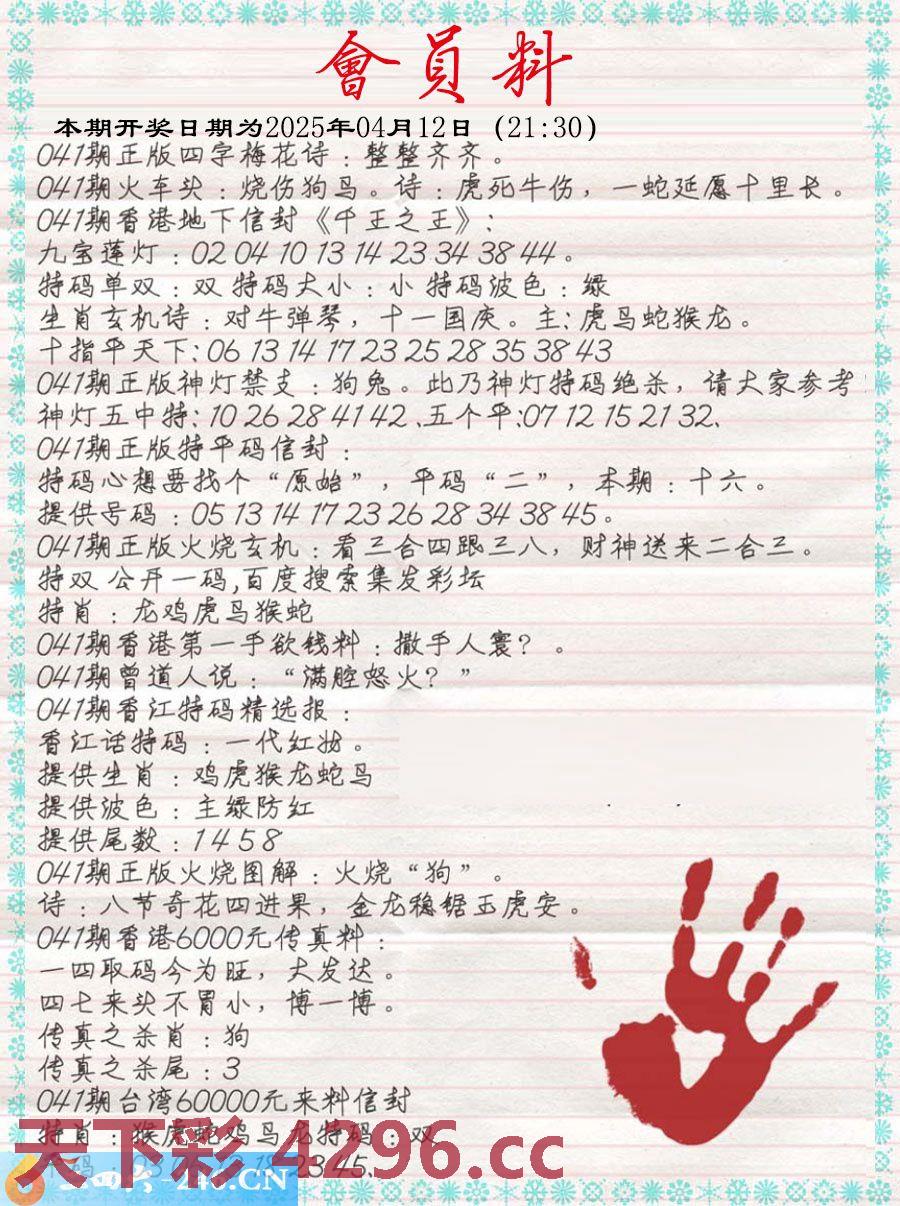 會員料
本期开奖日期为2025年04月12日（21:30）
041期正版四字梅花诗：整整齐齐。
041期火车头：烧伤狗鸟。诗：虎死牛伤，一蛇延愿十里长。
041期香港地下信封《千王之王》:
九宝莲灯：02 04 10 13 14 23 34 38 44。
特码单双：双 特码大小：小 特码波色：绿
生肖玄机诗：对牛弹琴，十一国庆。主:虎鸟蛇猴龙。
十指平天下:06 13 14 17 23 25 28 35 38 43
041期正版神灯禁支：狗兔。此乃神灯特码绝杀，请大家参考
神灯五中特:10 26 28 41 42 .五个平:07 12 15 21 32.
041期正版特平码信封：
特码心想要找个“原始”，平码“二”，本期：十六。
提供号码：05 13 14 17 23 26 28 34 38 45。
041期正版火烧玄机：看三合四跟三八，财神送来二合三。
特双 公开一码,百度搜索集发彩坛
特肖：龙鸡虎鸟猴蛇
041期香港第一手欲钱料：撒手人寰？。
041期曾道人说：“满腔怒火？”
041期香江特码精选报：
香江话特码：一代红妆。
提供生肖：鸡虎猴龙蛇鸟
提供波色：主绿防红
提供尾数：1 4 5 8
041期正版火烧图解：火烧“狗”。
诗：八节奇花四进果，金龙稳锯玉虎安。
041期香港6000元传真料：
一四取码今为旺，大发达。
四七来头不胃小，博一博。
传真之杀肖：狗
传真之杀尾：3
041期台湾60000元来料信封
特肖：猴虎蛇鸡鸟龙特码：双
23 45.
天下彩 4296.cc
-246.CN